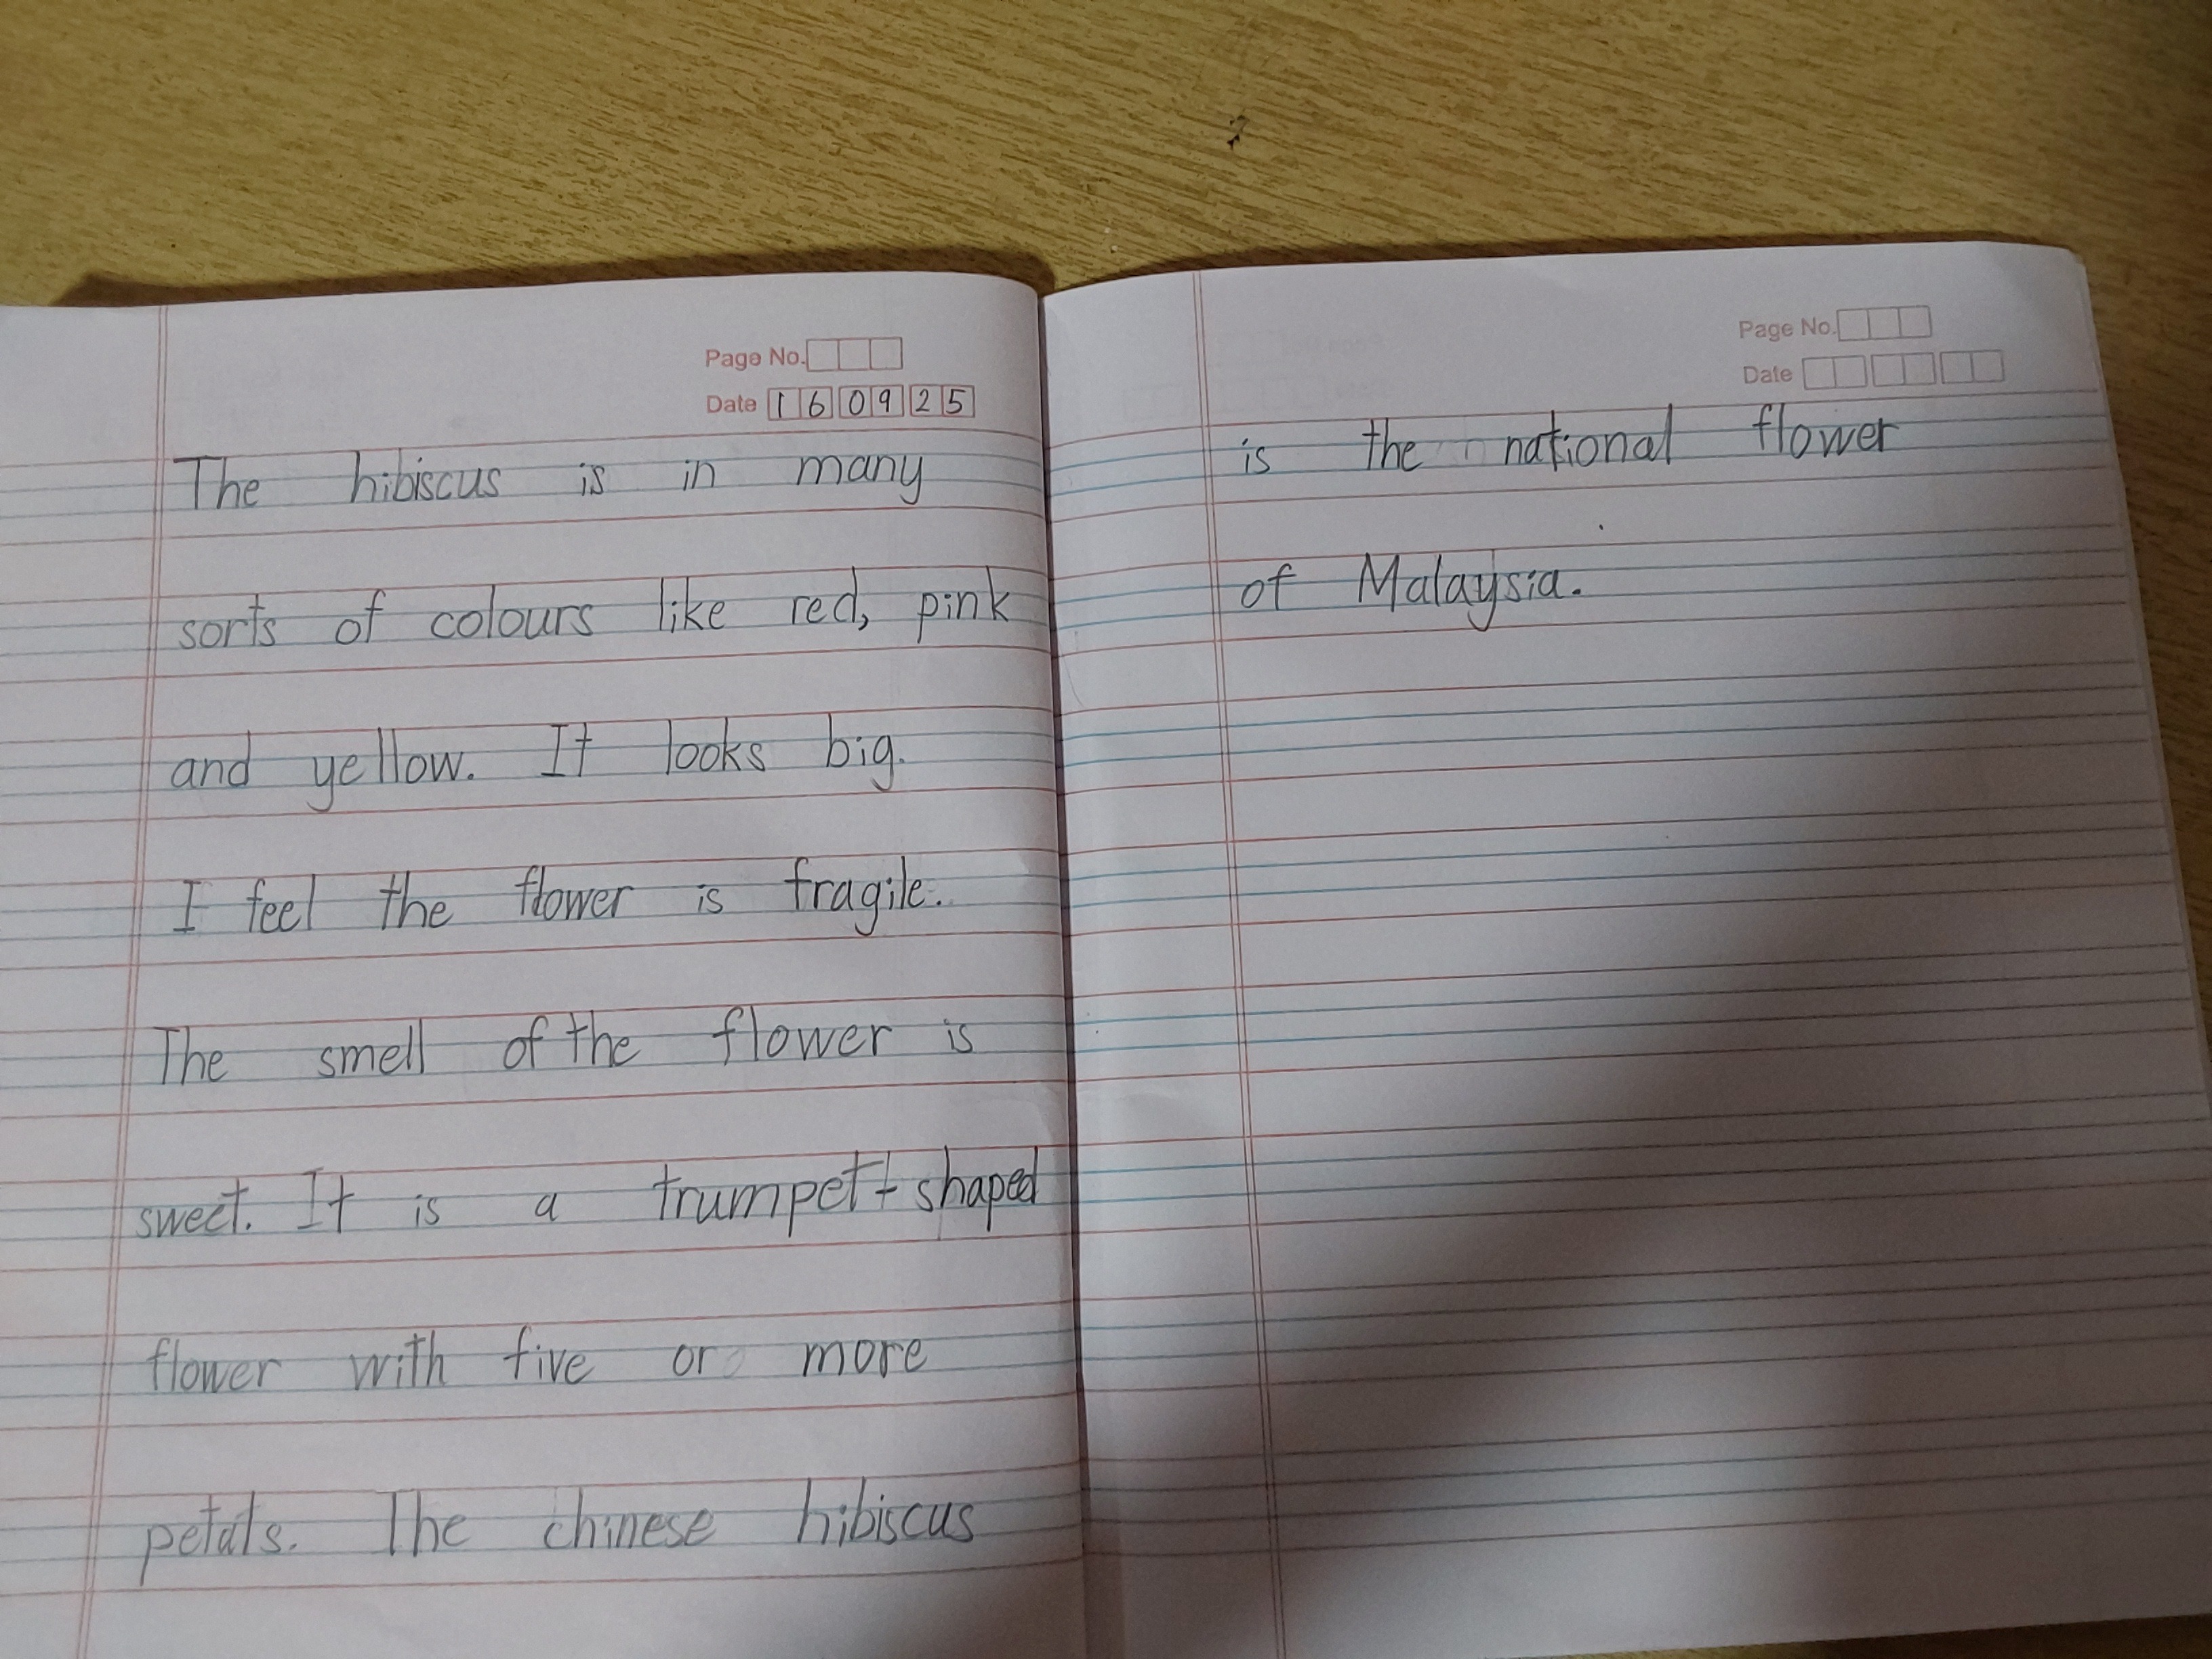 Page No.
Date 16 09 25
The hibiscus is in many
sorts of colours like red, pink
and yellow. It looks big.
I feel the flower is fragile.
The smell of the flower is
sweet. It is a trumpet-shaped
flower with five or more
petals. The chinese hibiscus
Page No.
Date
is the national flower
of Malaysia.